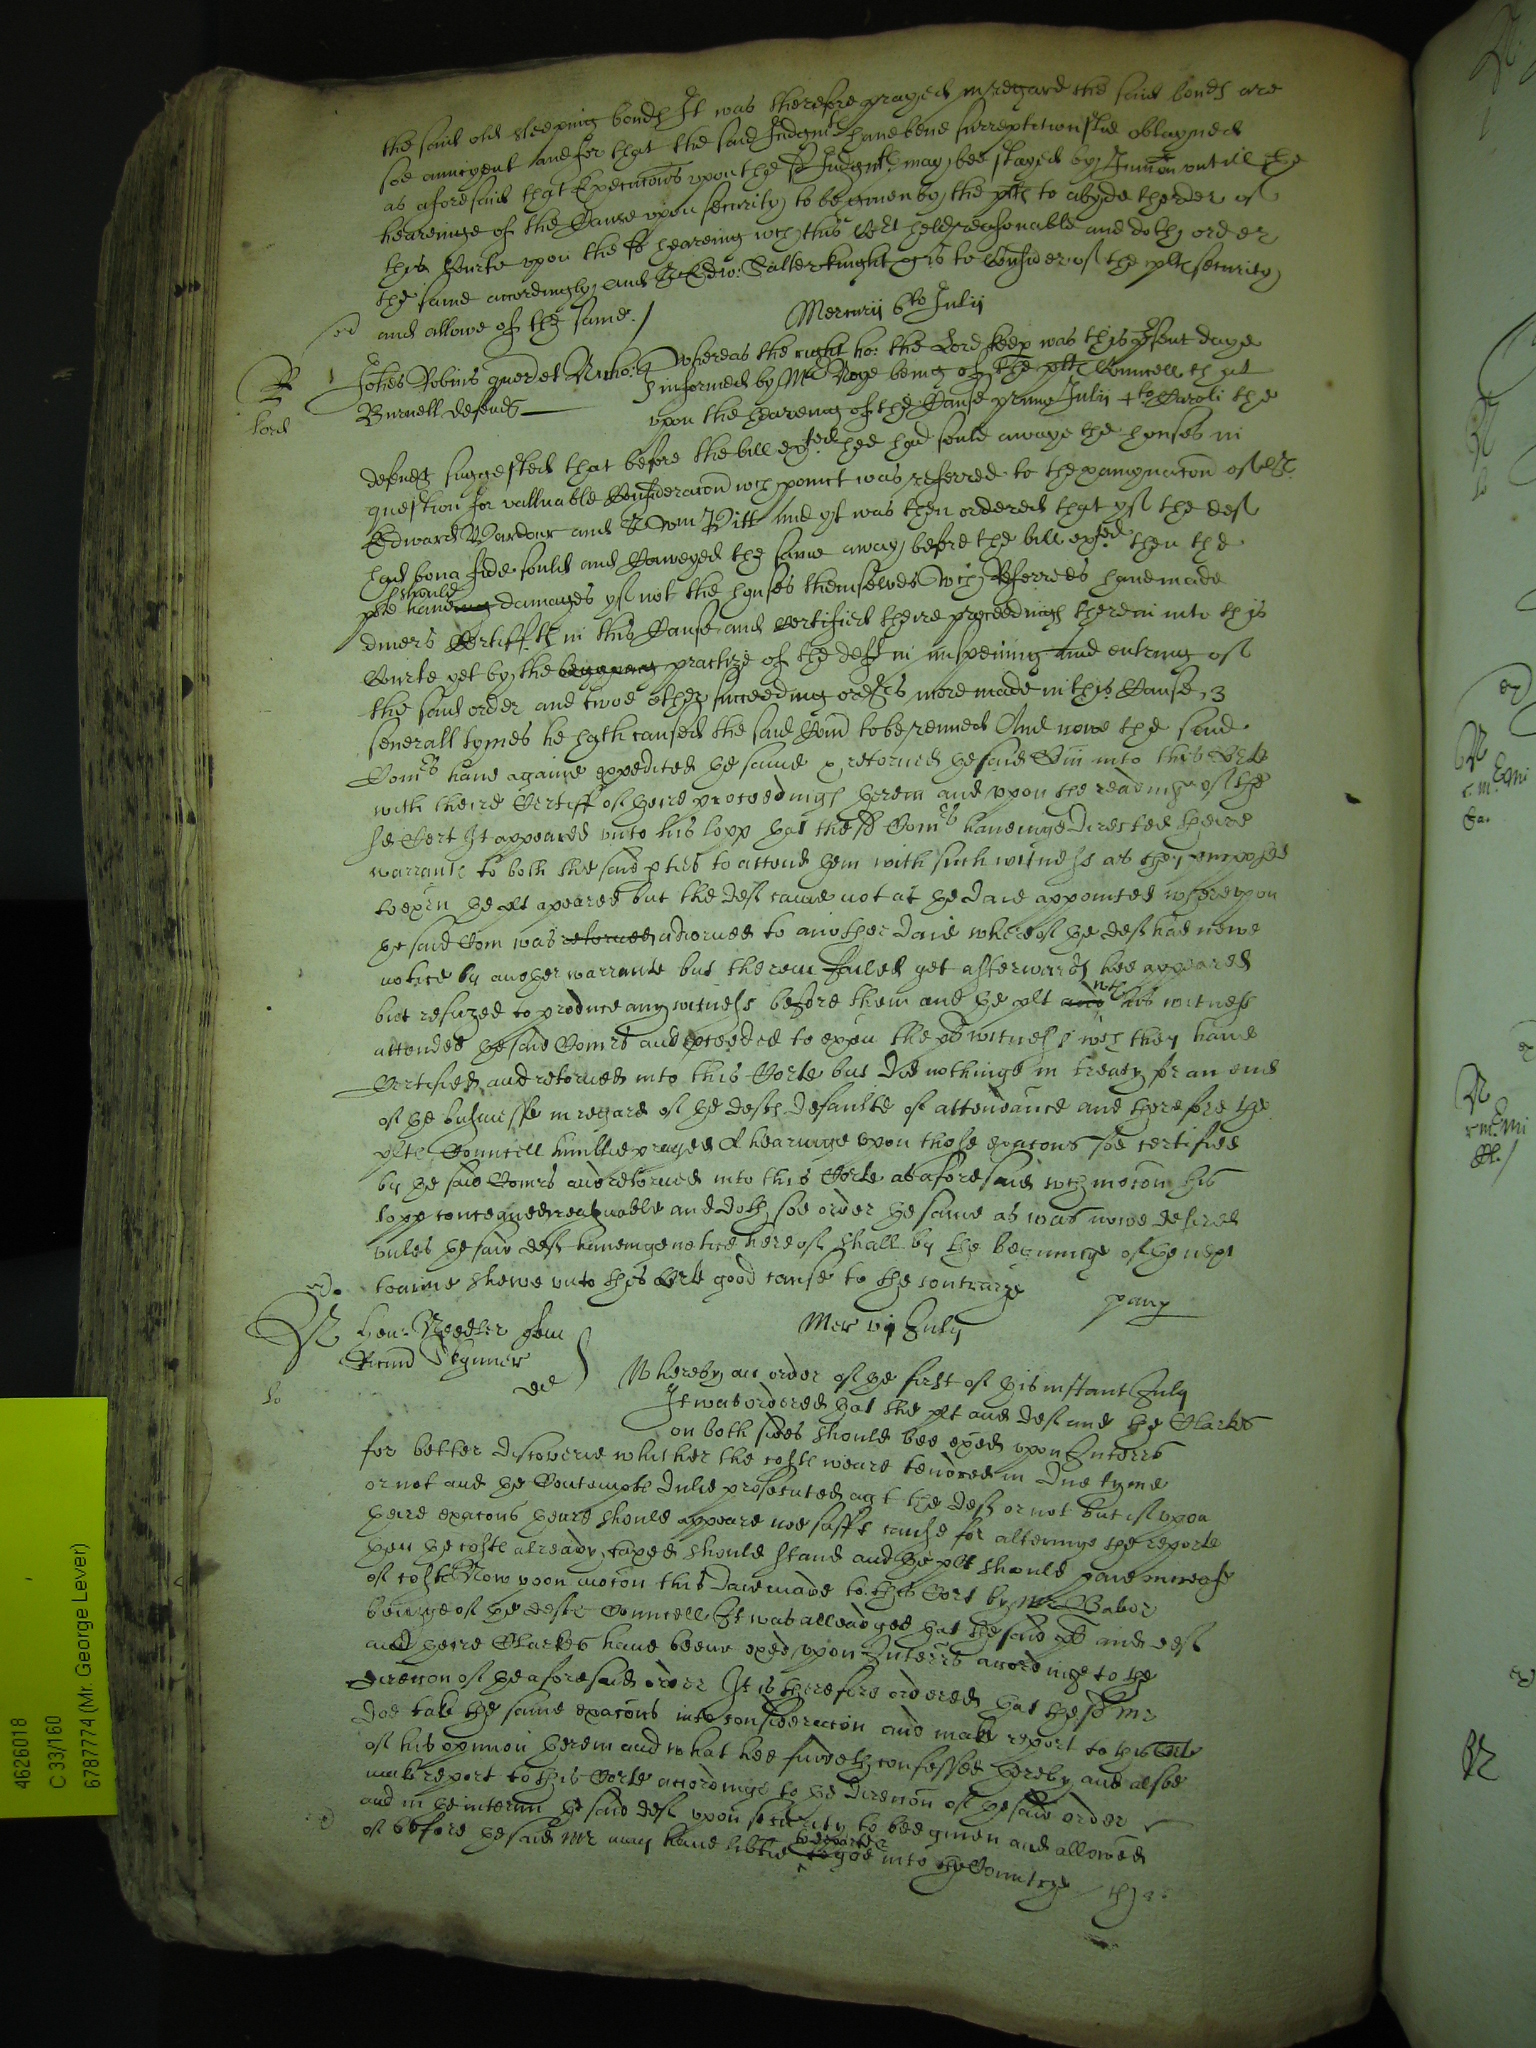 the said old sleeping bonds It was therefore prayed in regard the said bonds are
soe auncyent and for that the said Judgmts haue bene surreptitiouslie obtayned
as aforesaid that Execucons vpon the sd Judgmts may bee stayed by Iniuncon vntill the
heareinge of the Cause vpon security to be giuen by the plts to abyde therder of
this Courte vpon the sd heareing wch this Cort held reasonable and doth order
the same accordingly and Sr Edw: Salter knight is to Consider of the plts security
and allowe of the same./
Mercurij 6to Julij
Johes Robins quer et Nicho:
Burnell defend
Whereas the right ho: the Lord keep was this present daye
informed by Mr Noye being of the plts Councell that
vpon the heareing of the Cause primo Julij 4to Caroli the
defendt suggested that before the bill exhited hee had sould awaye the houses in
question for valluable Consideracon wch poinct was referred to thexamynacon of Sr
Edward Wardour and Sr Wm Pitt And yt was then ordered that yf the def
had bona fide sould and Conveyed the same away before the bill exhited then the
plt should haue damages yf not the houses themselves Wch Referrees haue made
diuers Certiffts in this Cause and Certified theire proceedings therein into this
Courte yet by the practize of the deft in penning and entring of
the said order and twoe other succeeding orders more made in this Cause, 3
seuerall tymes he hath caused the said Com to be renued And nowe the said
Comrs haue againe expedited the same & retorned the said Com into this Corte
with theire Certiff of theire proceedings therein and vpon the readinge of the
sd Cert It appeared vnto his lopp that the sd Comrs haueinge directed theire
warrants to both the said pties to attend them with such witnesses as they purposed
to exam the plt apeared but the def came not at the daie appointed wherevpon
the said Com was retorned adiorned to another daie whereof the def had newe
notice by another warrante but therein failed yet afterwards hee appeared
but refuzed to produce any witnesse before them and the plt with his witnesses
attended the said Comrs and proceeded to exam the plts witnesses wch they haue
Certified and retorned into this Corte but did nothinge in treaty for an end
of the businesse in regard of the defts defaulte of attendance and therefore the
plts Councell humblie prayed A hearinge vpon those exacons soe certified
by the said Comrs and retorned into this Corte as aforesaid wch mocon his
lopp conceaued reasonable and doth soe order the same as was nowe desired
vnles the said def haueinge notice hereof shall by the beginninge of the next
tearme shewe vnto this Corte good cause to the contrarye
Mer vj July
Hen: Needler gent
Skynner
def
Whereby an order of the first of this instant July
It was ordered that the plt and def and the Clarkes
on both sides should bee exed vpon Interrs
for better discoverie whither the costs weare tendred in due tyme
or not and the Contempte dulie prosecuted agt the def or not but if vpon
theire exacons there should appeare noe sufft cause for alteringe the reporte
then the costs already taxed should stand and the plt should paie increase
of costs Now vpon mocon this daie made to this Cort by Mr Baber
beinge of the defts Councell It was alleadged that the said plt and def
and theire Clarkes haue beene exed vpon Interrs accordinge to the
direccon of the aforesaid order It is therefore ordered that the sd Mr
doe take the same exacons into consideracon and make report to this Corte
of his opinion therein and what hee findeth confessed thereby and alsoe
make report to this Corte accordinge to the direccon of the said order
and in the interim the said def vpon security to bee giuen and allowed
of before the said Mr may haue libtie to goe into the Countrye
4626018
C 33/160
6787774 (Mr. George Lever)